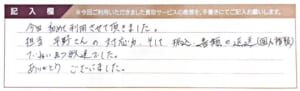 記入欄
※今回ご利用いただきました買取サービスの感想を、手書きにてご記入お願いします。
今回 初めて利用させて頂きました。
担当 平野さんの対応力、そして 振込、書類の返送(個人情報)
ていねいな対応でした。
ありがとう ございました。